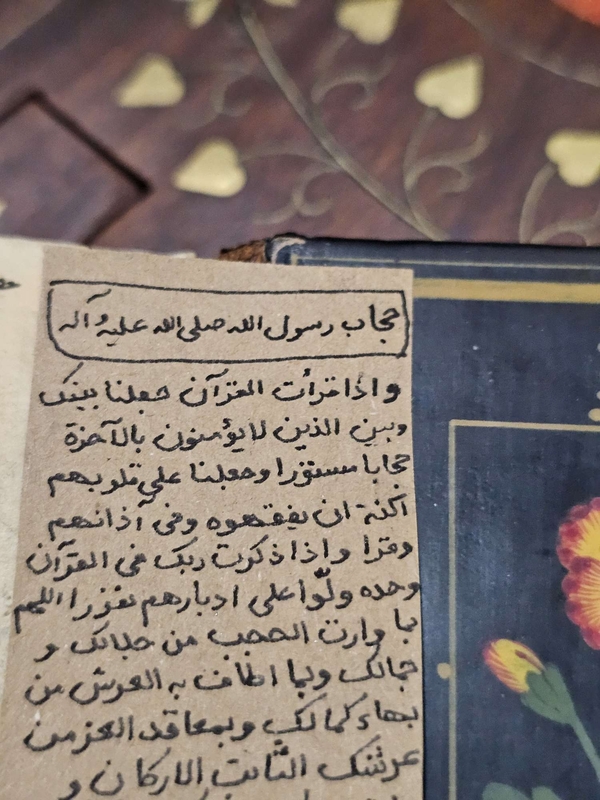 حجاب رسول الله صلى الله عليه وآله
واذا قرأت القرآن جعلنا بينك
وبين الذين لا يؤمنون بالآخرة
حجابا مستورا وجعلنا على قلوبهم
اكنة ان يفقهوه وفى آذانهم
وقرا واذا ذكرت ربك فى القرآن
وحده ولّوا على ادبارهم نفورا اللهم
بما وارت الحجب من جلالك و
جمالك وبما اطاف به العرش من
بهاء كمالك وبمعاقد العز من
عرشك الثابت الاركان و